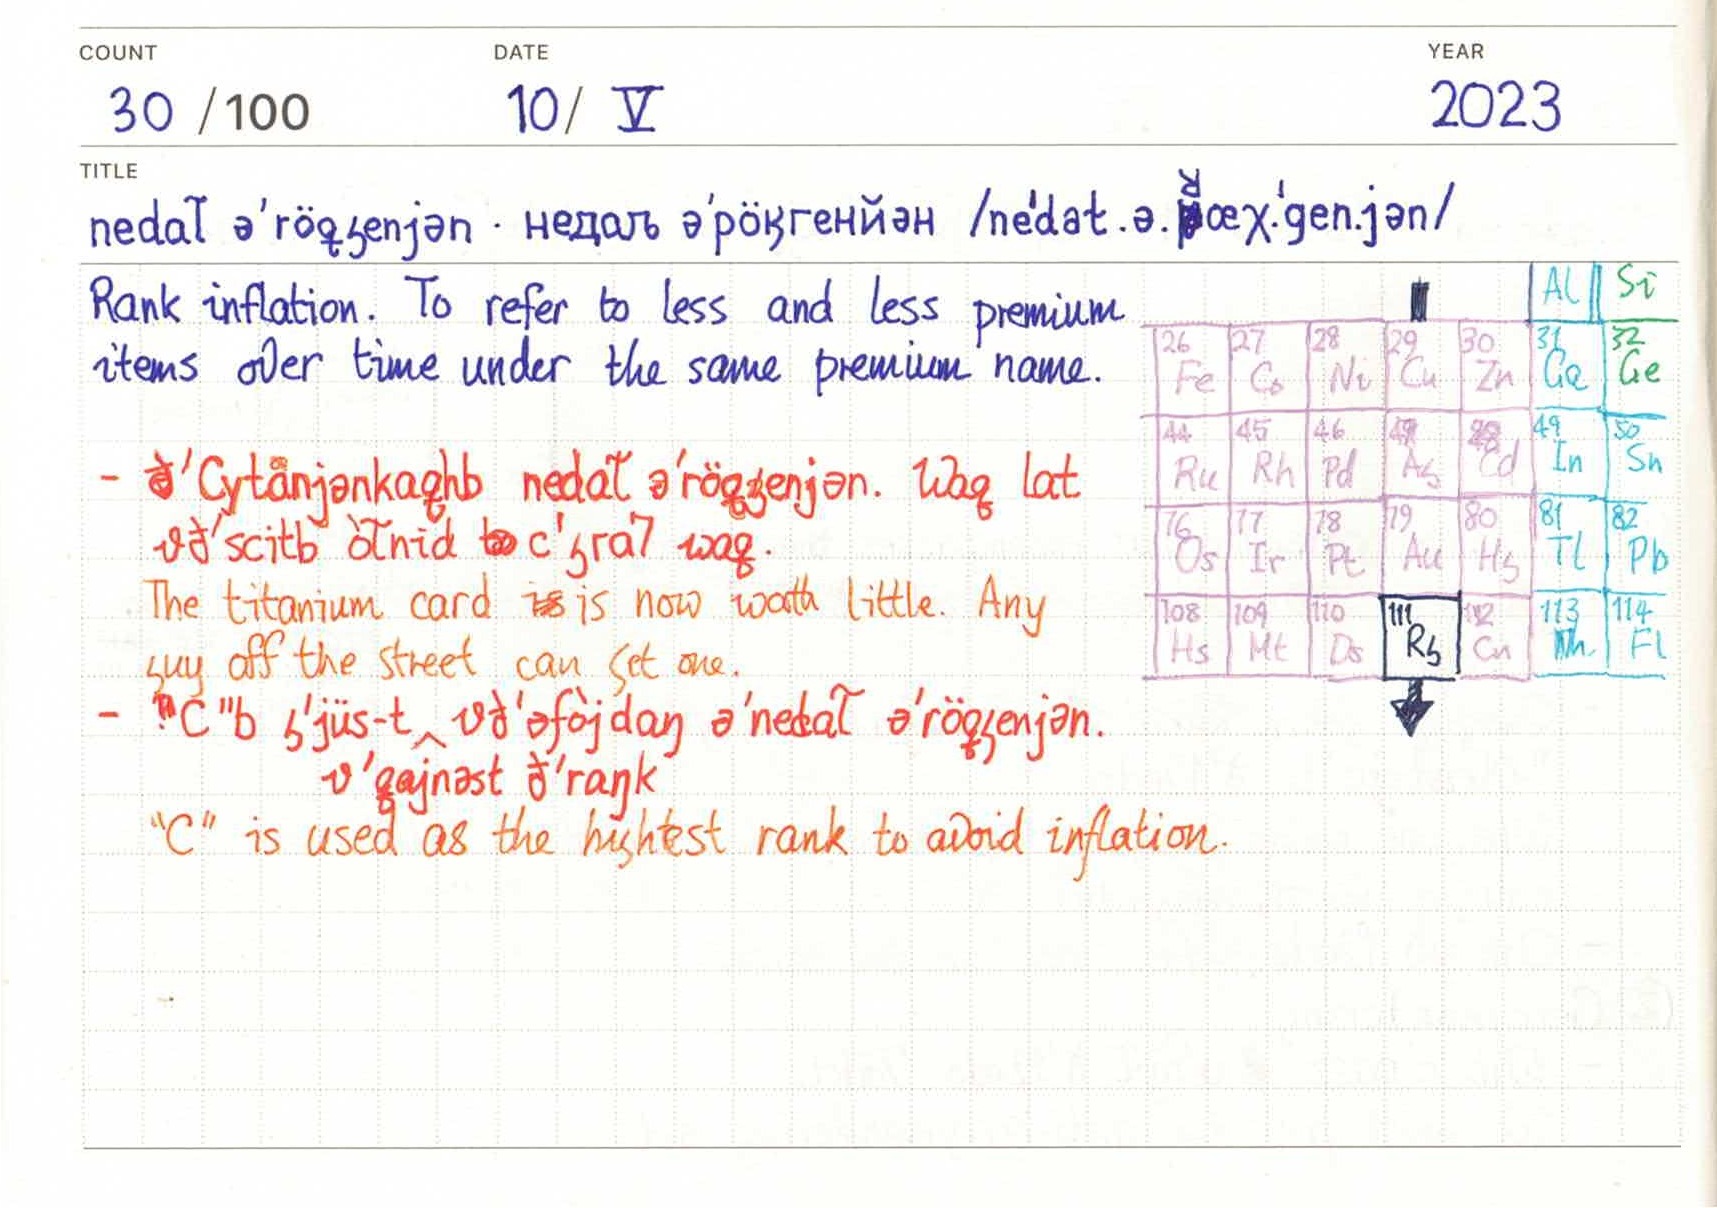 COUNT DATE YEAR
30 /100 10/ V 2023
TITLE
nedał ə'röqʒenjən · недаљ ə'рöӄгенйəн /ne'dat.ə.ʀœχ.'gen.jən/
Rank inflation. To refer to less and less premium
items over time under the same premium name.
- ð'Cytånjənkaqhb nedał ə'röqʒenjən. Waq lat
The titanium card is now worth little. Any
guy off the street can get one.
v'qajnəst ð'raŋk
"C" is used as the highest rank to avoid inflation.
Al Si
26 27 28 29 30 31 32
Fe Co Ni Cu Zn Ga Ge
44 45 46 49 50
Ru Rh Pd Ag Cd In Sn
76 77 78 79 80 81 82
Os Ir Pt Au Hg Tl Pb
108 109 110 111 112 113 114
Hs Mt Ds Rg Cn Nh Fl